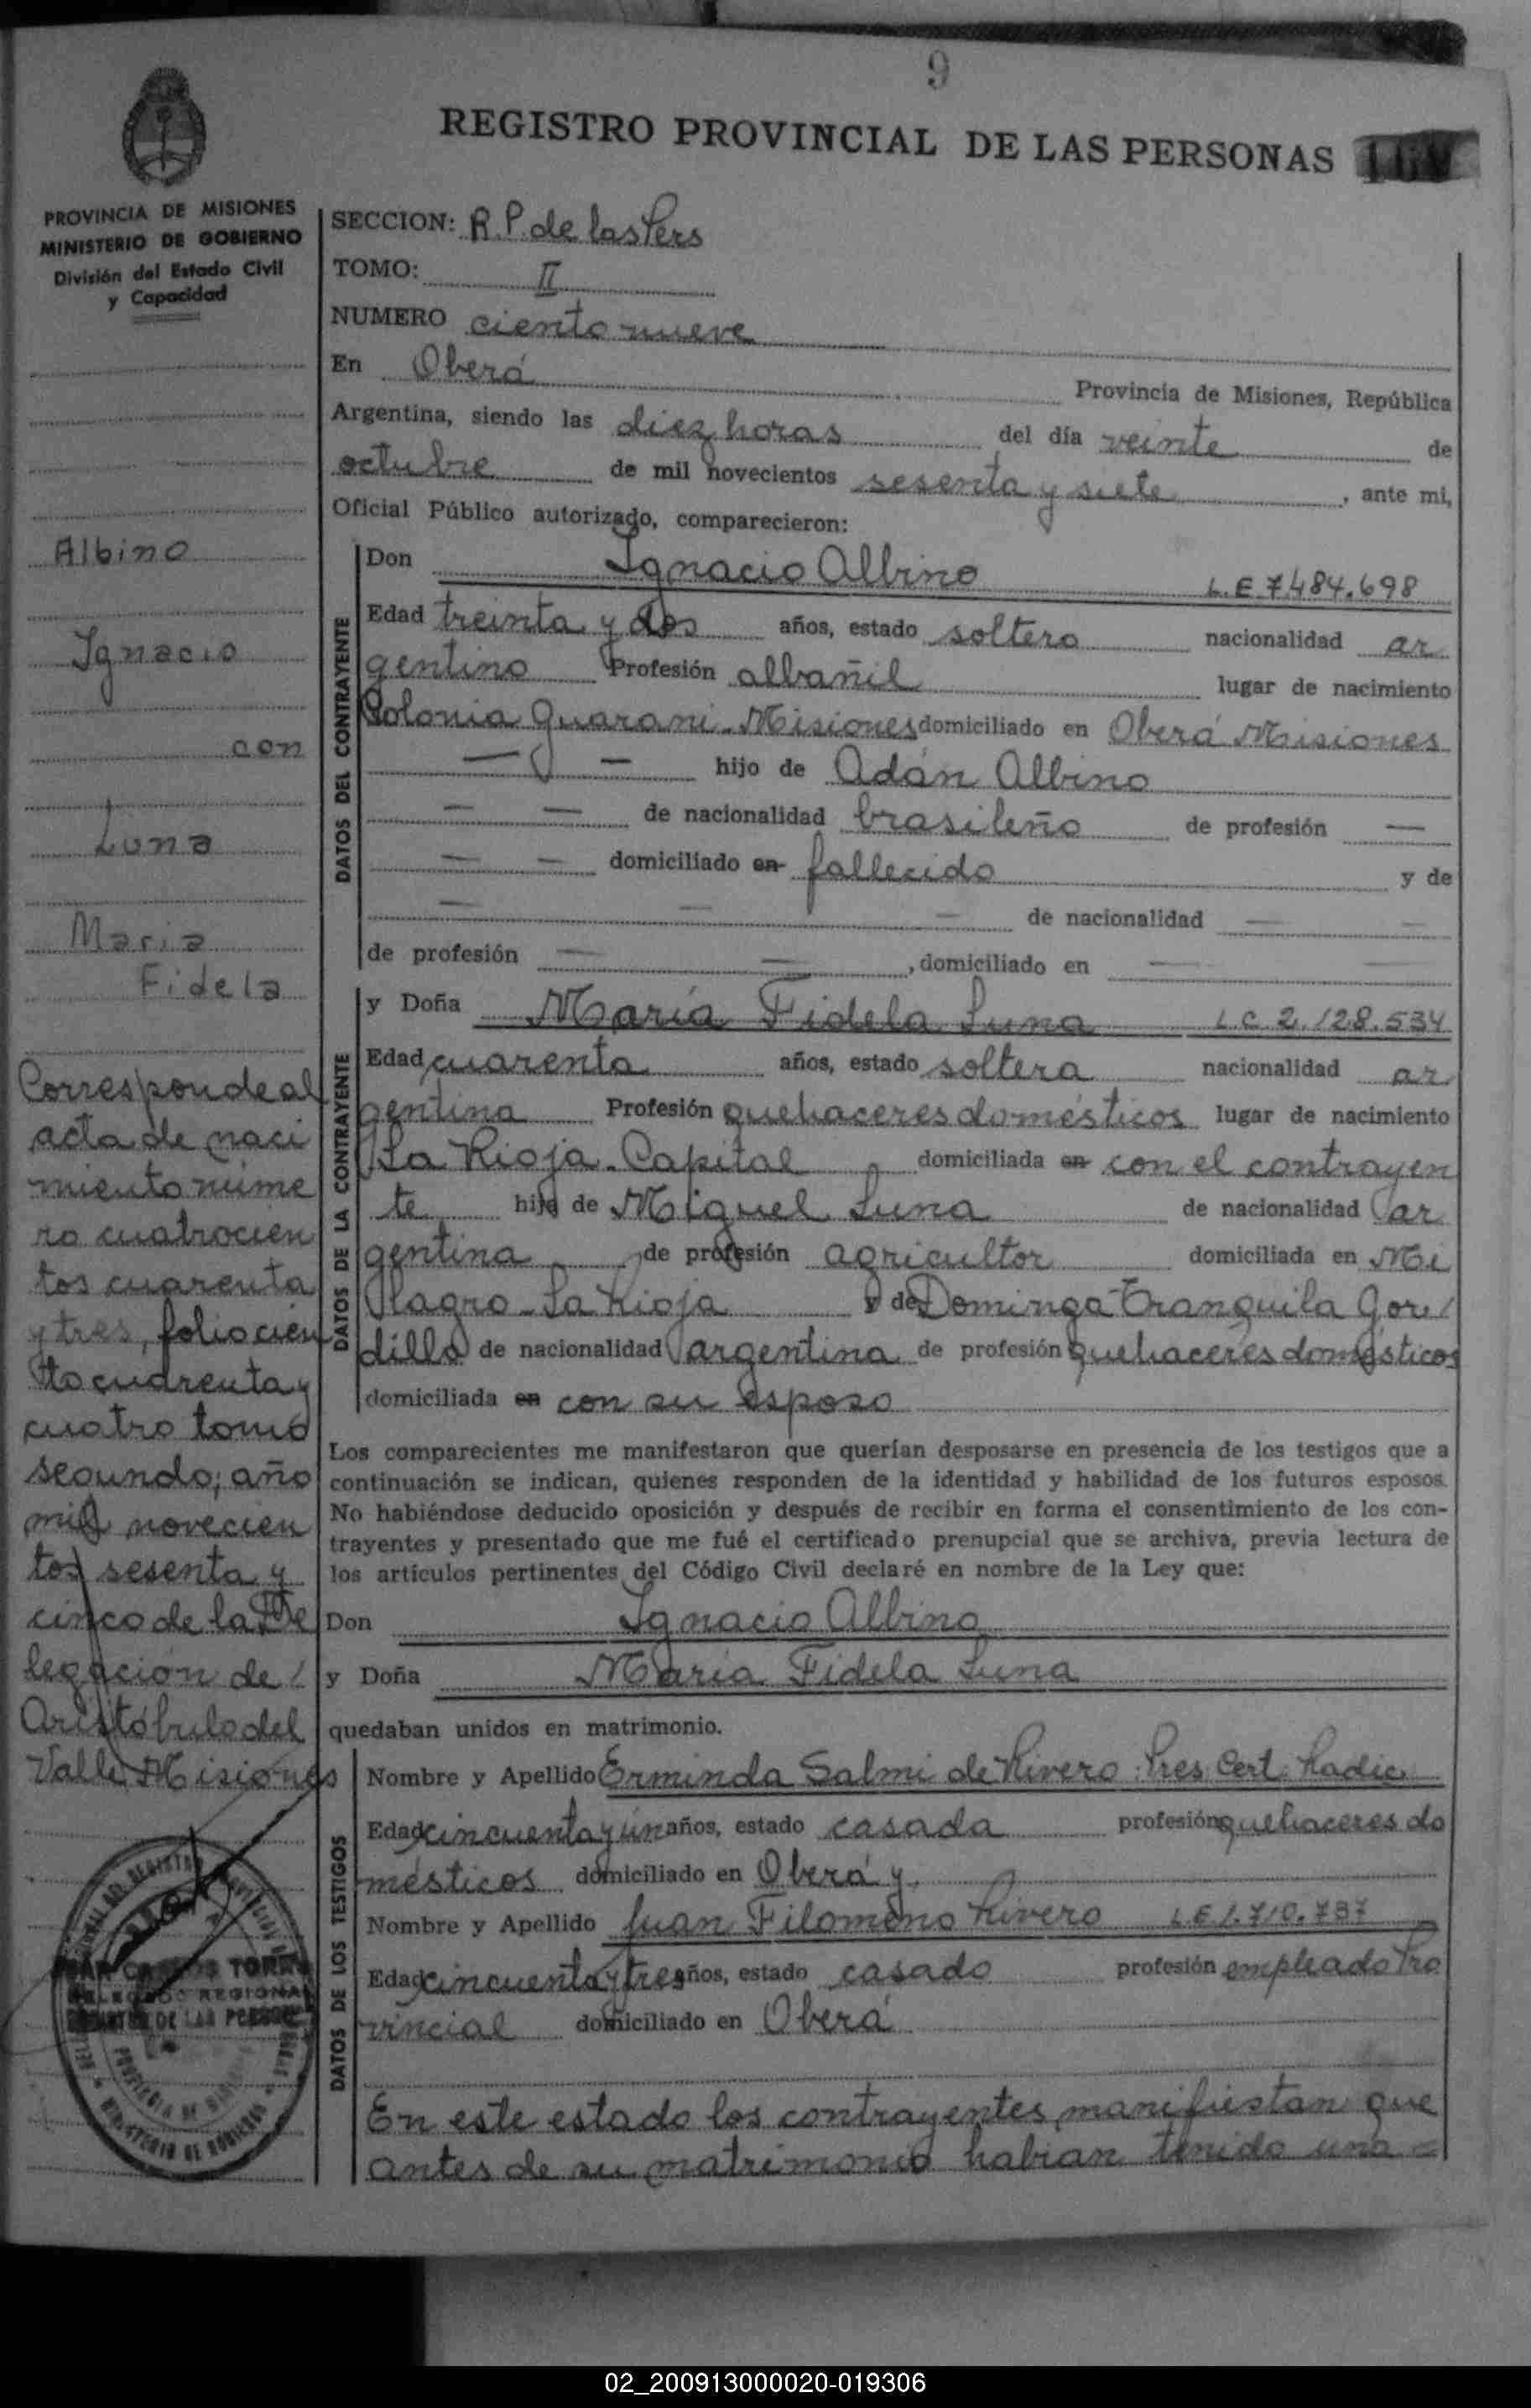 9
REGISTRO PROVINCIAL DE LAS PERSONAS
PROVINCIA DE MISIONES
MINISTERIO DE GOBIERNO
División del Estado Civil
y Capacidad
SECCION: R.P. de las Pers
TOMO: II
NUMERO ciento nueve
En Oberá Provincia de Misiones, República
Argentina, siendo las diez horas del día veinte de
octubre de mil novecientos sesenta y siete, ante mi,
Oficial Público autorizado, comparecieron:
Albino
Ignacio
con
Luna
Maria
Fidela
Corresponde al
acta de naci
miento núme
ro cuatrocien
tos cuarenta
y tres, folio cien
to cuarenta y
cuatro tomo
segundo; año
mil novecien
tos sesenta y
cinco de la De
legación de /
Aristóbulo del
Valle Misiones
DATOS DEL CONTRAYENTE
Don Ignacio Albino L.E 7.484.698
Edad treinta y dos años, estado soltero nacionalidad ar
gentino Profesión albañil lugar de nacimiento
Colonia Guarani - Misiones domiciliado en Oberá Misiones
— — hijo de Adán Albino
— — de nacionalidad brasileño de profesión —
— — domiciliado en fallecido y de
— — — de nacionalidad — —
de profesión — —, domiciliado en — —
DATOS DE LA CONTRAYENTE
y Doña María Fidela Luna L.C 2.128.534
Edad cuarenta años, estado soltera nacionalidad ar
gentina Profesión quehaceres domésticos lugar de nacimiento
La Rioja - Capital domiciliada en con el contrayen
te hija de Miguel Luna de nacionalidad ar
gentina de profesión agricultor domiciliada en Mi
lagro - La Rioja y de Dominga Tranquila Gor /
dillo de nacionalidad argentina de profesión quehaceres domésticos
domiciliada en con su esposo
Los comparecientes me manifestaron que querían desposarse en presencia de los testigos que a
continuación se indican, quienes responden de la identidad y habilidad de los futuros esposos.
No habiéndose deducido oposición y después de recibir en forma el consentimiento de los con-
trayentes y presentado que me fué el certificado prenupcial que se archiva, previa lectura de
los artículos pertinentes del Código Civil declaré en nombre de la Ley que:
Don Ignacio Albino
y Doña María Fidela Luna
quedaban unidos en matrimonio.
DATOS DE LOS TESTIGOS
Nombre y Apellido Erminda Salmi de Rivero: Pres Cert. Radic
Edad cincuenta y ún años, estado casada profesión quehaceres do
mésticos domiciliado en Oberá y
Nombre y Apellido Juan Filomeno Rivero L.E 1.710.737
Edad cincuenta y tres años, estado casado profesión empleado Pro
vincial domiciliado en Oberá
En este estado los contrayentes manifiestan que
antes de su matrimonio habian tenido una =
02_200913000020-019306